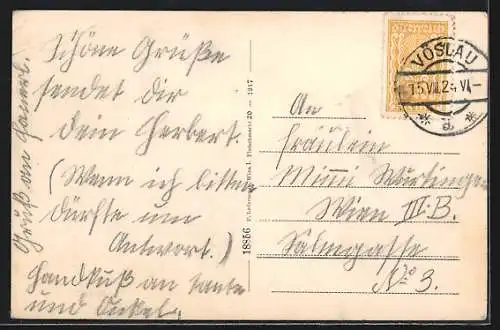 Schöne Grüße
sendet dir
dein Herbert.
(Wenn ich bitten
dürfte um
Antwort.)
Handkuß an Tante
und Onkel.
Gruß an
18856 P. Ledermann, Wien I, Fleischmarkt 20 — 1917
VÖSLAU
15.VII.24.VI-
* a *
An
Fräulein
Mimi Wurtinger
Wien III.B.
Salmgasse
No 3.